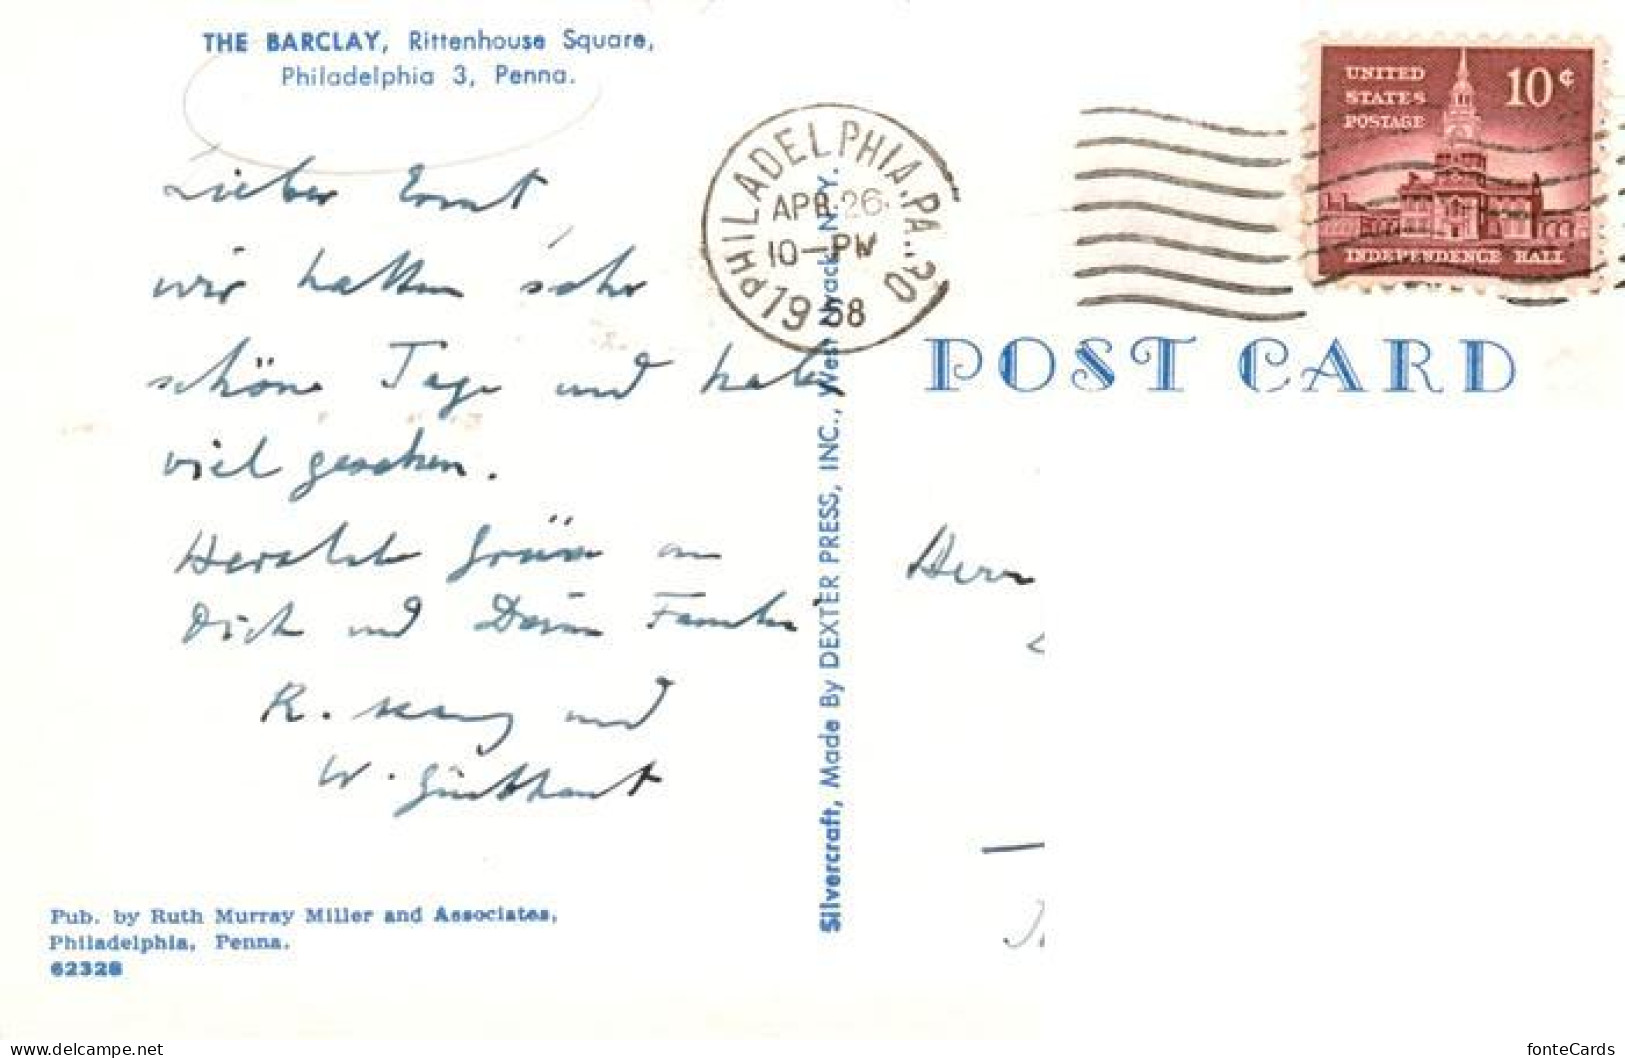 THE BARCLAY, Rittenhouse Square,
Philadelphia 3, Penna.
Lieber Ernst
wir hatten sehr
schöne Tage und haben
viel gesehen.
Herzliche Grüsse an
Dich und Deine Familie
R. und
W.
Pub. by Ruth Murray Miller and Associates,
Philadelphia, Penna.
62328
Silvercraft, Made By DEXTER PRESS, INC., West Nyack, N.Y.
PHILADELPHIA, PA. 30
APR 26
10-PM
1958
UNITED
STATES
POSTAGE
10¢
INDEPENDENCE HALL
POST CARD
Herrn
fonteCards
delcampe.net